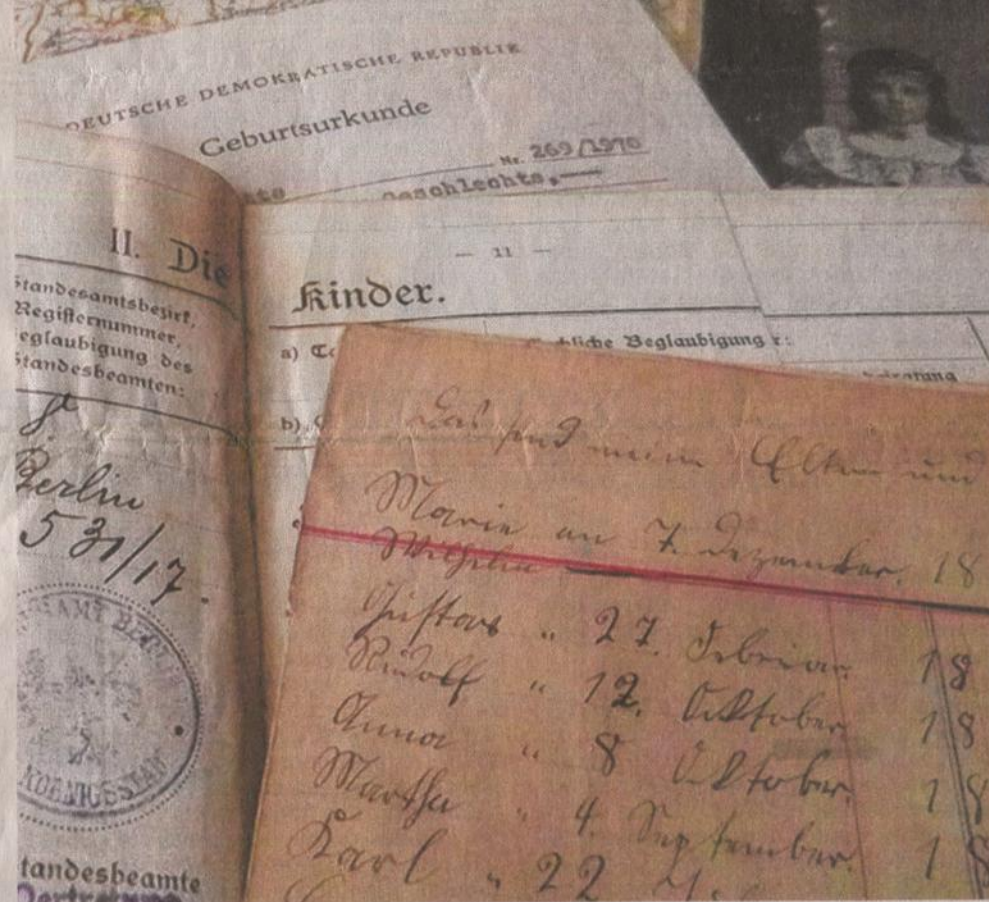 DEUTSCHE DEMOKRATISCHE REPUBLIK
Geburtsurkunde
Nr. 269/1970
geschlechts,—
II. Die
Standesamtsbezirk,
Registernummer,
eglaubigung des
Standesbeamten:
Berlin
531/17.
SAMT BERLIN
KOENIGSSTADT
tandesbeamte
— 11 —
Kinder.
a)
liche Beglaubigung
b)
Das sind meine Eltern und
Marie an 7. Dezember. 18
Wilhelm
Gustav " 27. Februar. 18
Rudolf " 12. Oktober 18
Anna " 8 Oktober. 18
Martha " 4. September. 18
Karl " 22